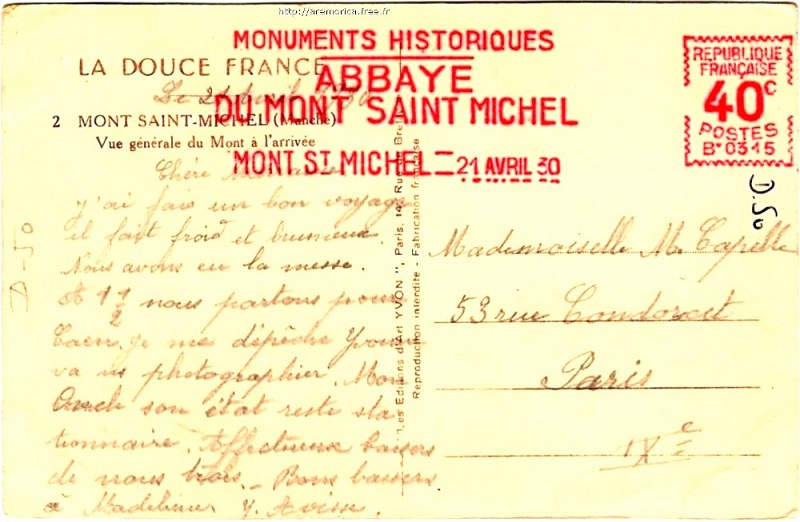 http://aremorica.free.fr
MONUMENTS HISTORIQUES
ABBAYE
DU MONT SAINT MICHEL
MONT ST MICHEL = 21 AVRIL 30
REPUBLIQUE
FRANÇAISE
40c
POSTES
B*0315
LA DOUCE FRANCE
2 MONT SAINT-MICHEL (Manche)
Vue générale du Mont à l'arrivée
Le 21 Avril 1930
Chère
j'ai fais un bon voyage
il fait froid et brumeux.
Nous avons eu la messe.
A 1 1/2 nous partons pour
Caen. je me dépêche Yvonne
va us photographier. Mon
Oncle son état reste sta
tionnaire. Affectueux baisers
de nous trois. Bons baisers
à Madeleine Y.
Les Editions d'Art YVON", Paris, 14, Rue de
Reproduction interdite - Fabrication française
D.50
Mademoiselle M. Capelle
53 rue Condorcet
Paris
IXe
D-50